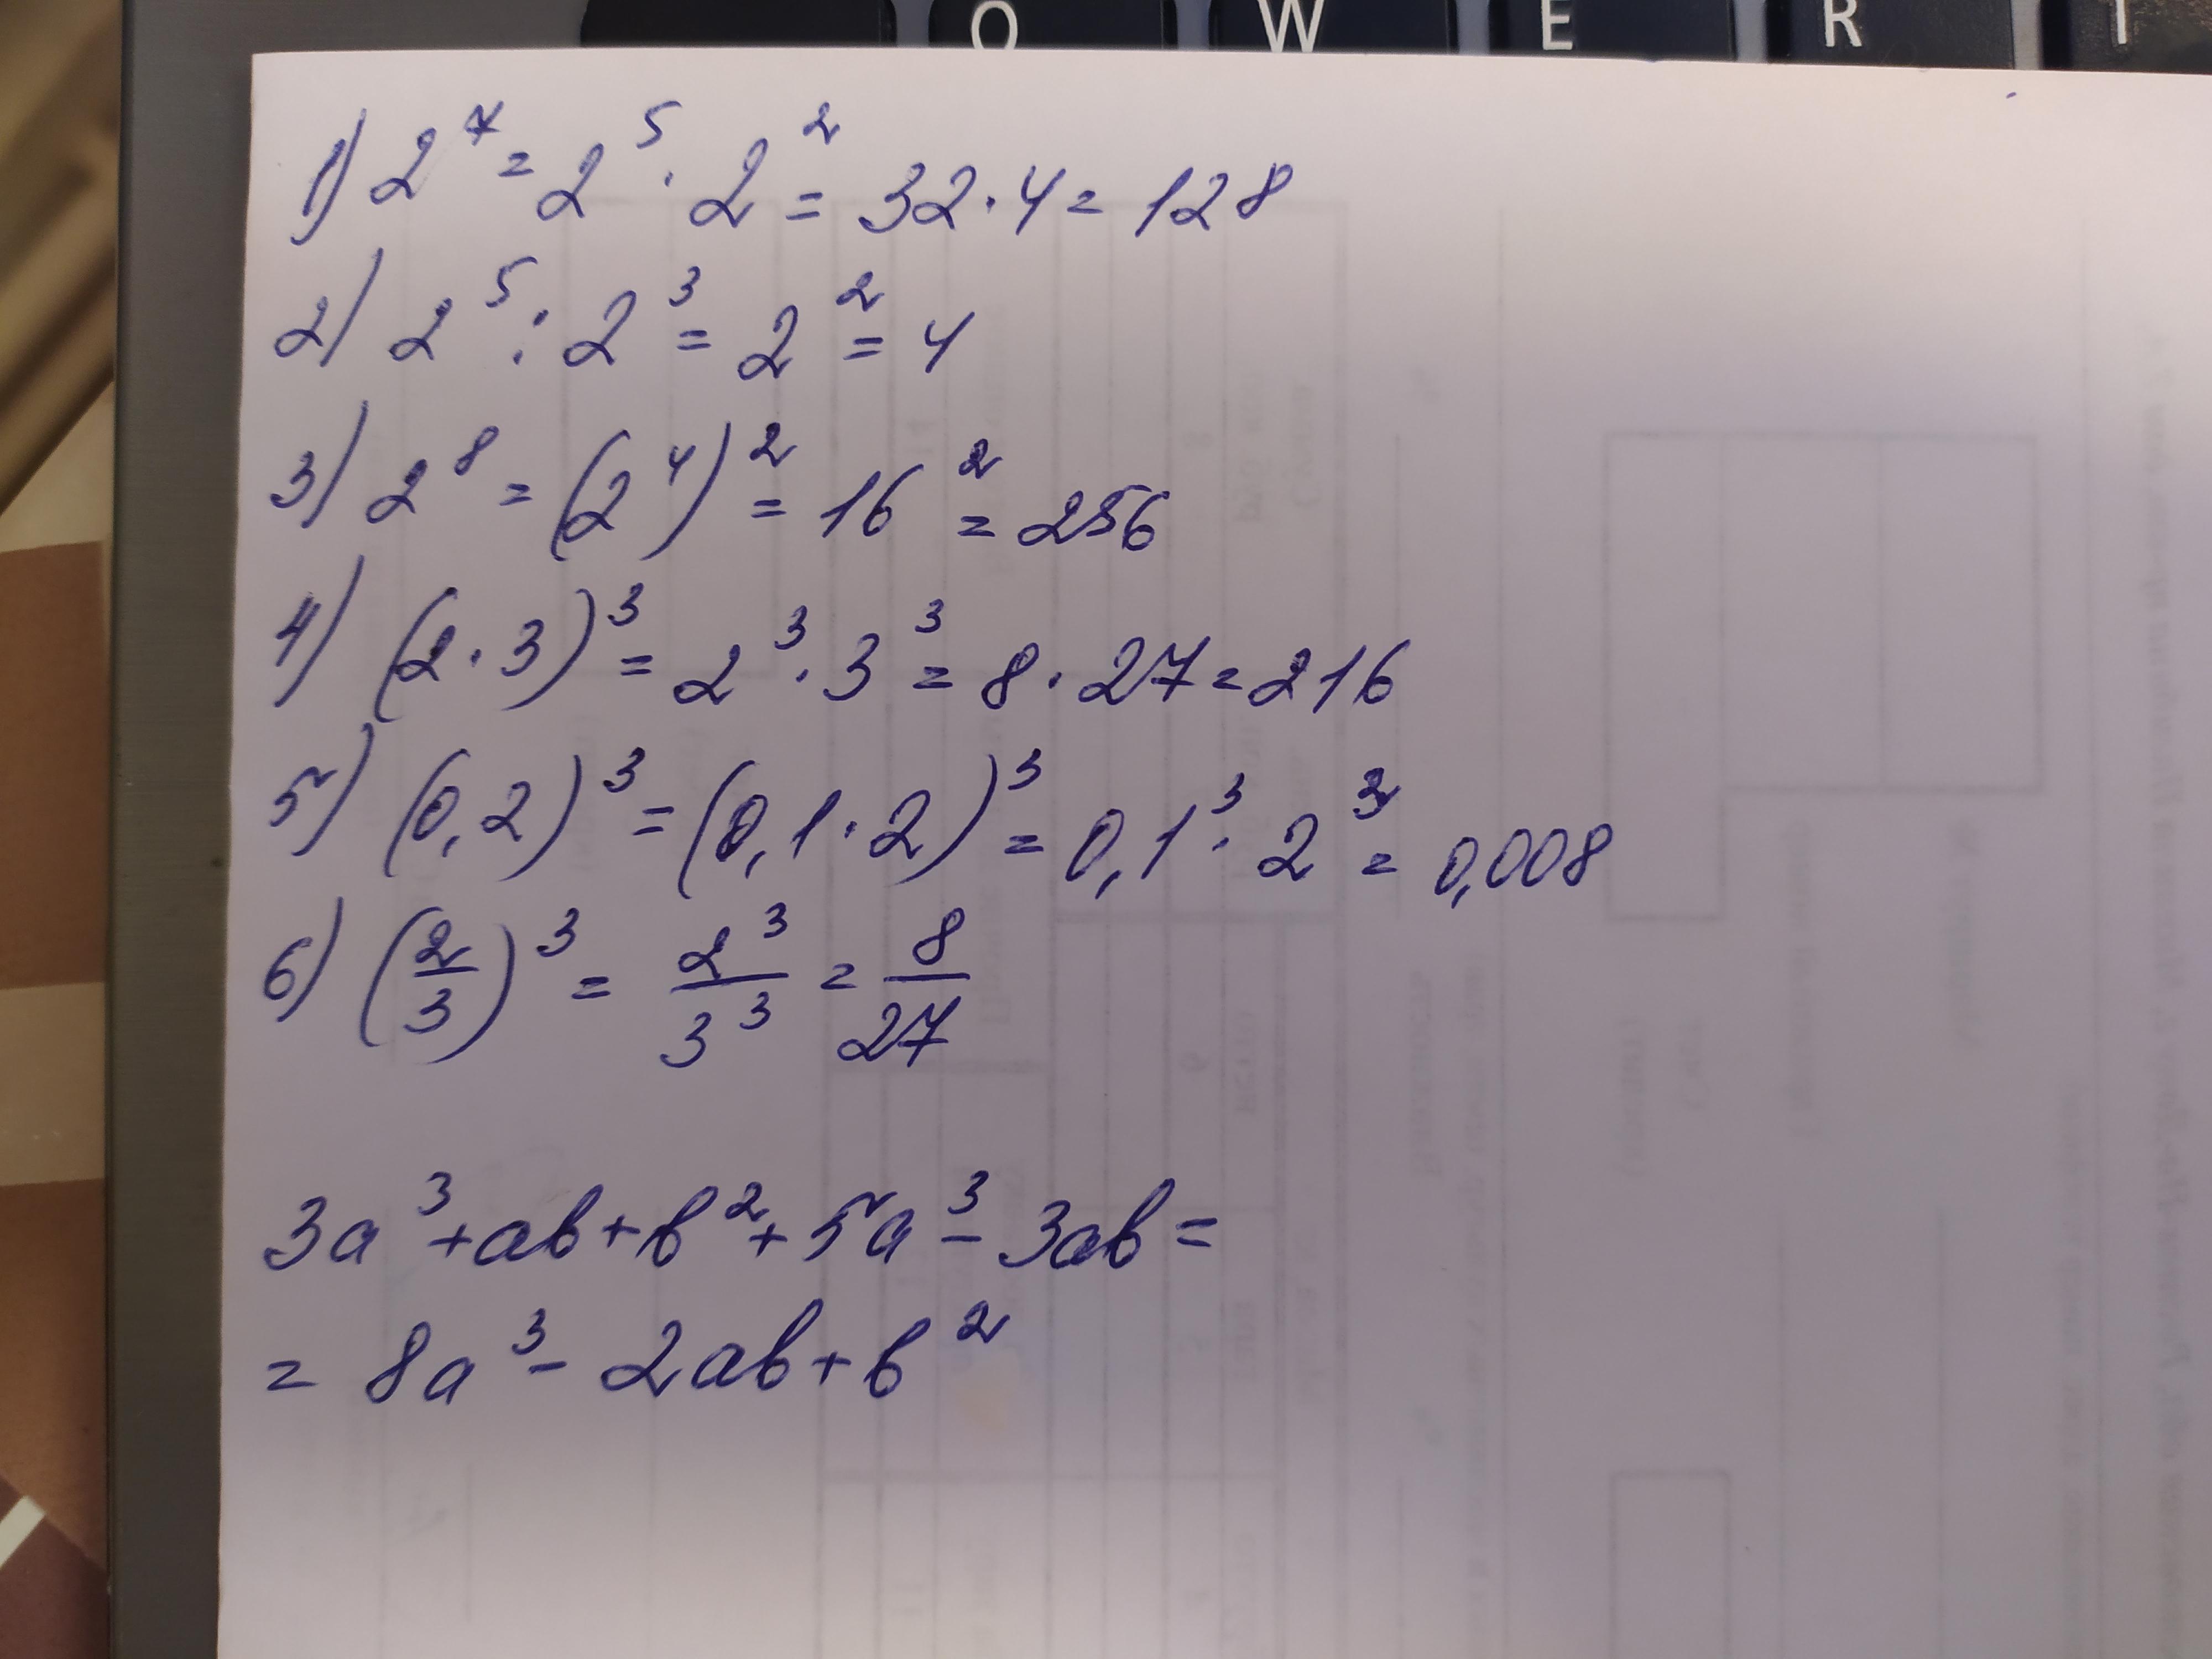 Q W E R T
1) 2⁷ = 2⁵ · 2² = 32 · 4 = 128
2) 2⁵ : 2³ = 2² = 4
3) 2⁸ = (2⁴)² = 16² = 256
4) (2 · 3)³ = 2³ · 3³ = 8 · 27 = 216
5) (0,2)³ = (0,1 · 2)³ = 0,1³ · 2³ = 0,008
6) (2/3)³ = 2³/3³ = 8/27
3a³ + ab + b² + 5a³ - 3ab =
= 8a³ - 2ab + b²